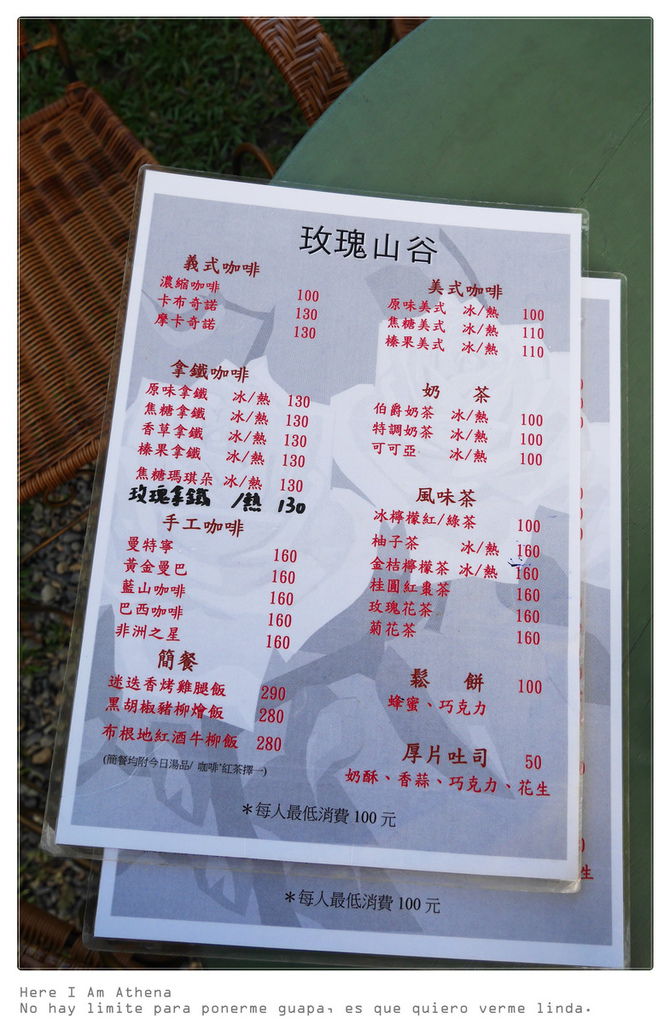 玫瑰山谷
義式咖啡
濃縮咖啡 100
卡布奇諾 130
摩卡奇諾 130
拿鐵咖啡
原味拿鐵 冰/熱 130
焦糖拿鐵 冰/熱 130
香草拿鐵 冰/熱 130
榛果拿鐵 冰/熱 130
焦糖瑪琪朵 冰/熱 130
玫瑰拿鐵 /熱 130
手工咖啡
曼特寧 160
黃金曼巴 160
藍山咖啡 160
巴西咖啡 160
非洲之星 160
簡餐
迷迭香烤雞腿飯 290
黑胡椒豬柳燴飯 280
布根地紅酒牛柳飯 280
(簡餐均附今日湯品/ 咖啡'紅茶擇一)
美式咖啡
原味美式 冰/熱 100
焦糖美式 冰/熱 110
榛果美式 冰/熱 110
奶 茶
伯爵奶茶 冰/熱 100
特調奶茶 冰/熱 100
可可亞 冰/熱 100
風味茶
冰檸檬紅/綠茶 100
柚子茶 冰/熱 160
金桔檸檬茶 冰/熱 160
桂圓紅棗茶 160
玫瑰花茶 160
菊花茶 160
鬆 餅 100
蜂蜜、巧克力
厚片吐司 50
奶酥、香蒜、巧克力、花生
＊每人最低消費 100 元
生
＊每人最低消費 100 元
Here I Am Athena
No hay limite para ponerme guapa, es que quiero verme linda.